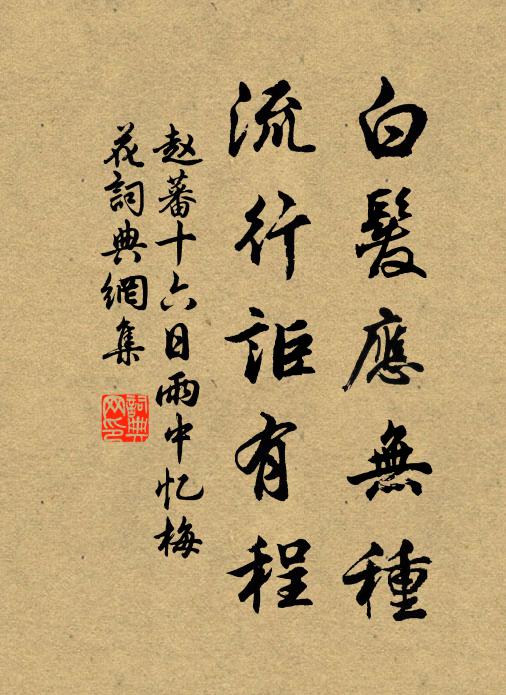 白髮應無種
流行詎有程
赵蕃十六日雨中忆梅
花詞典網集
詞典網印